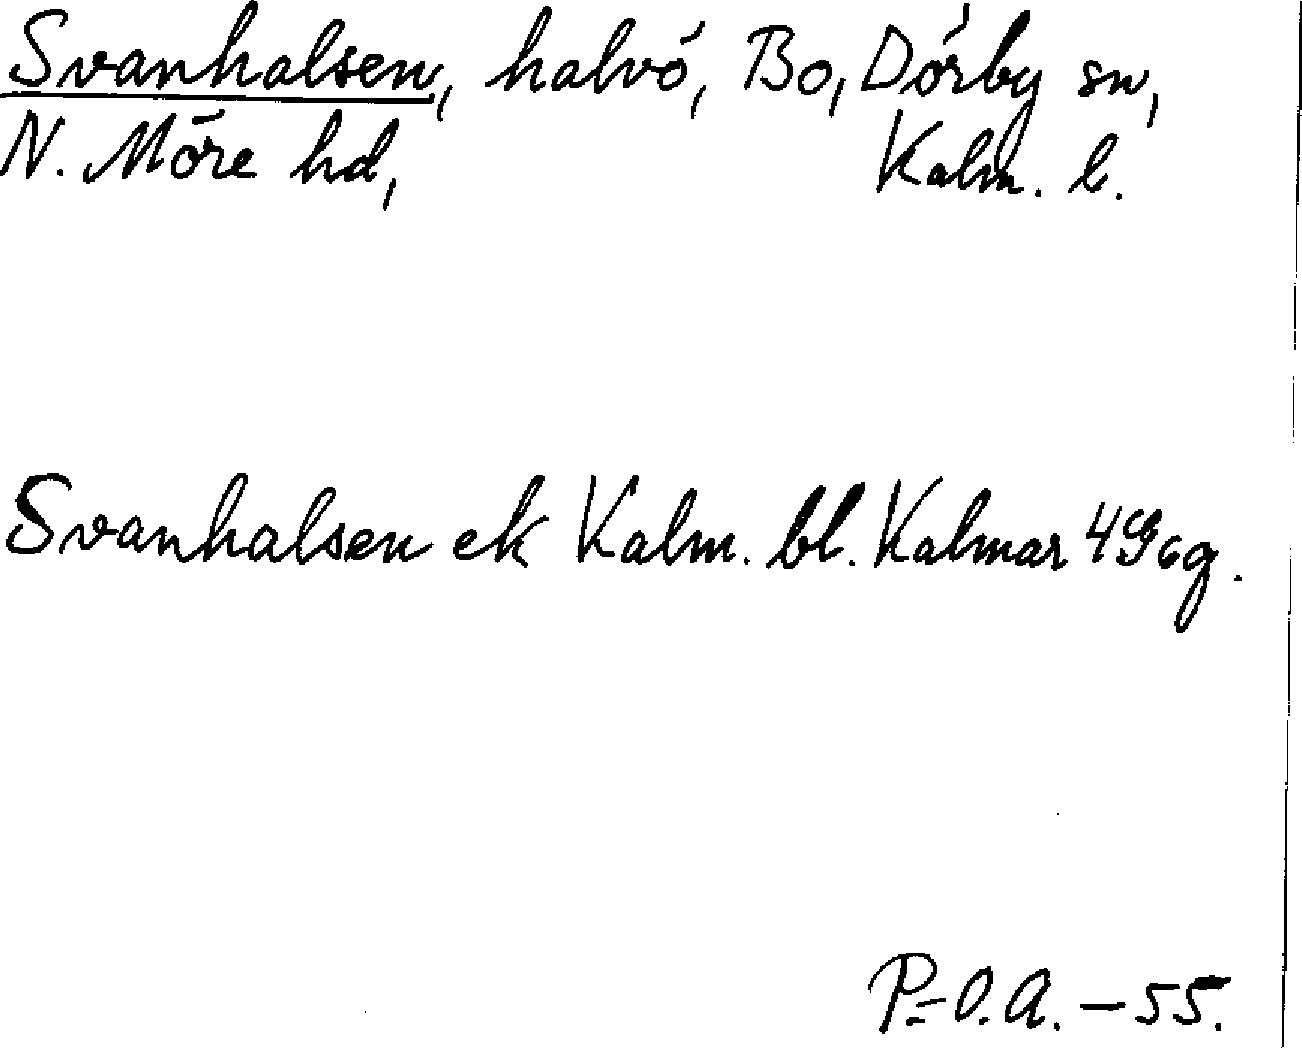 Svanhalsen, halvö, Bo, Dörby sn,
N. Möre hd, Kalm. l.
Svanhalsen ek Kalm. bl. Kalmar 4G6g.
P.-O.A. – 55.